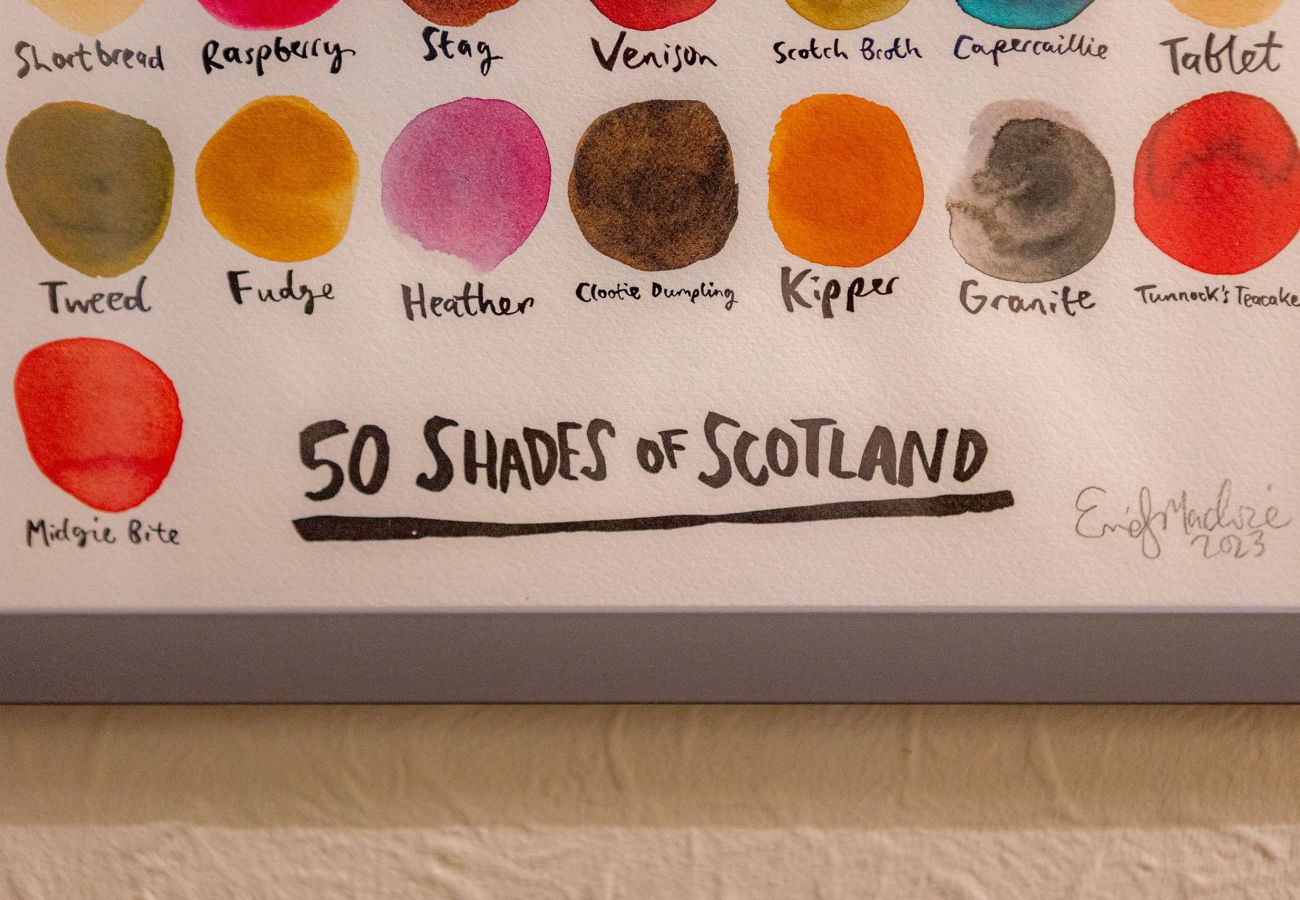 Shortbread Raspberry Stag Venison Scotch Broth Capercaillie Tablet
Tweed Fudge Heather Clootie Dumpling Kipper Granite Tunnock's Teacake
Midgie Bite
50 SHADES OF SCOTLAND
2023